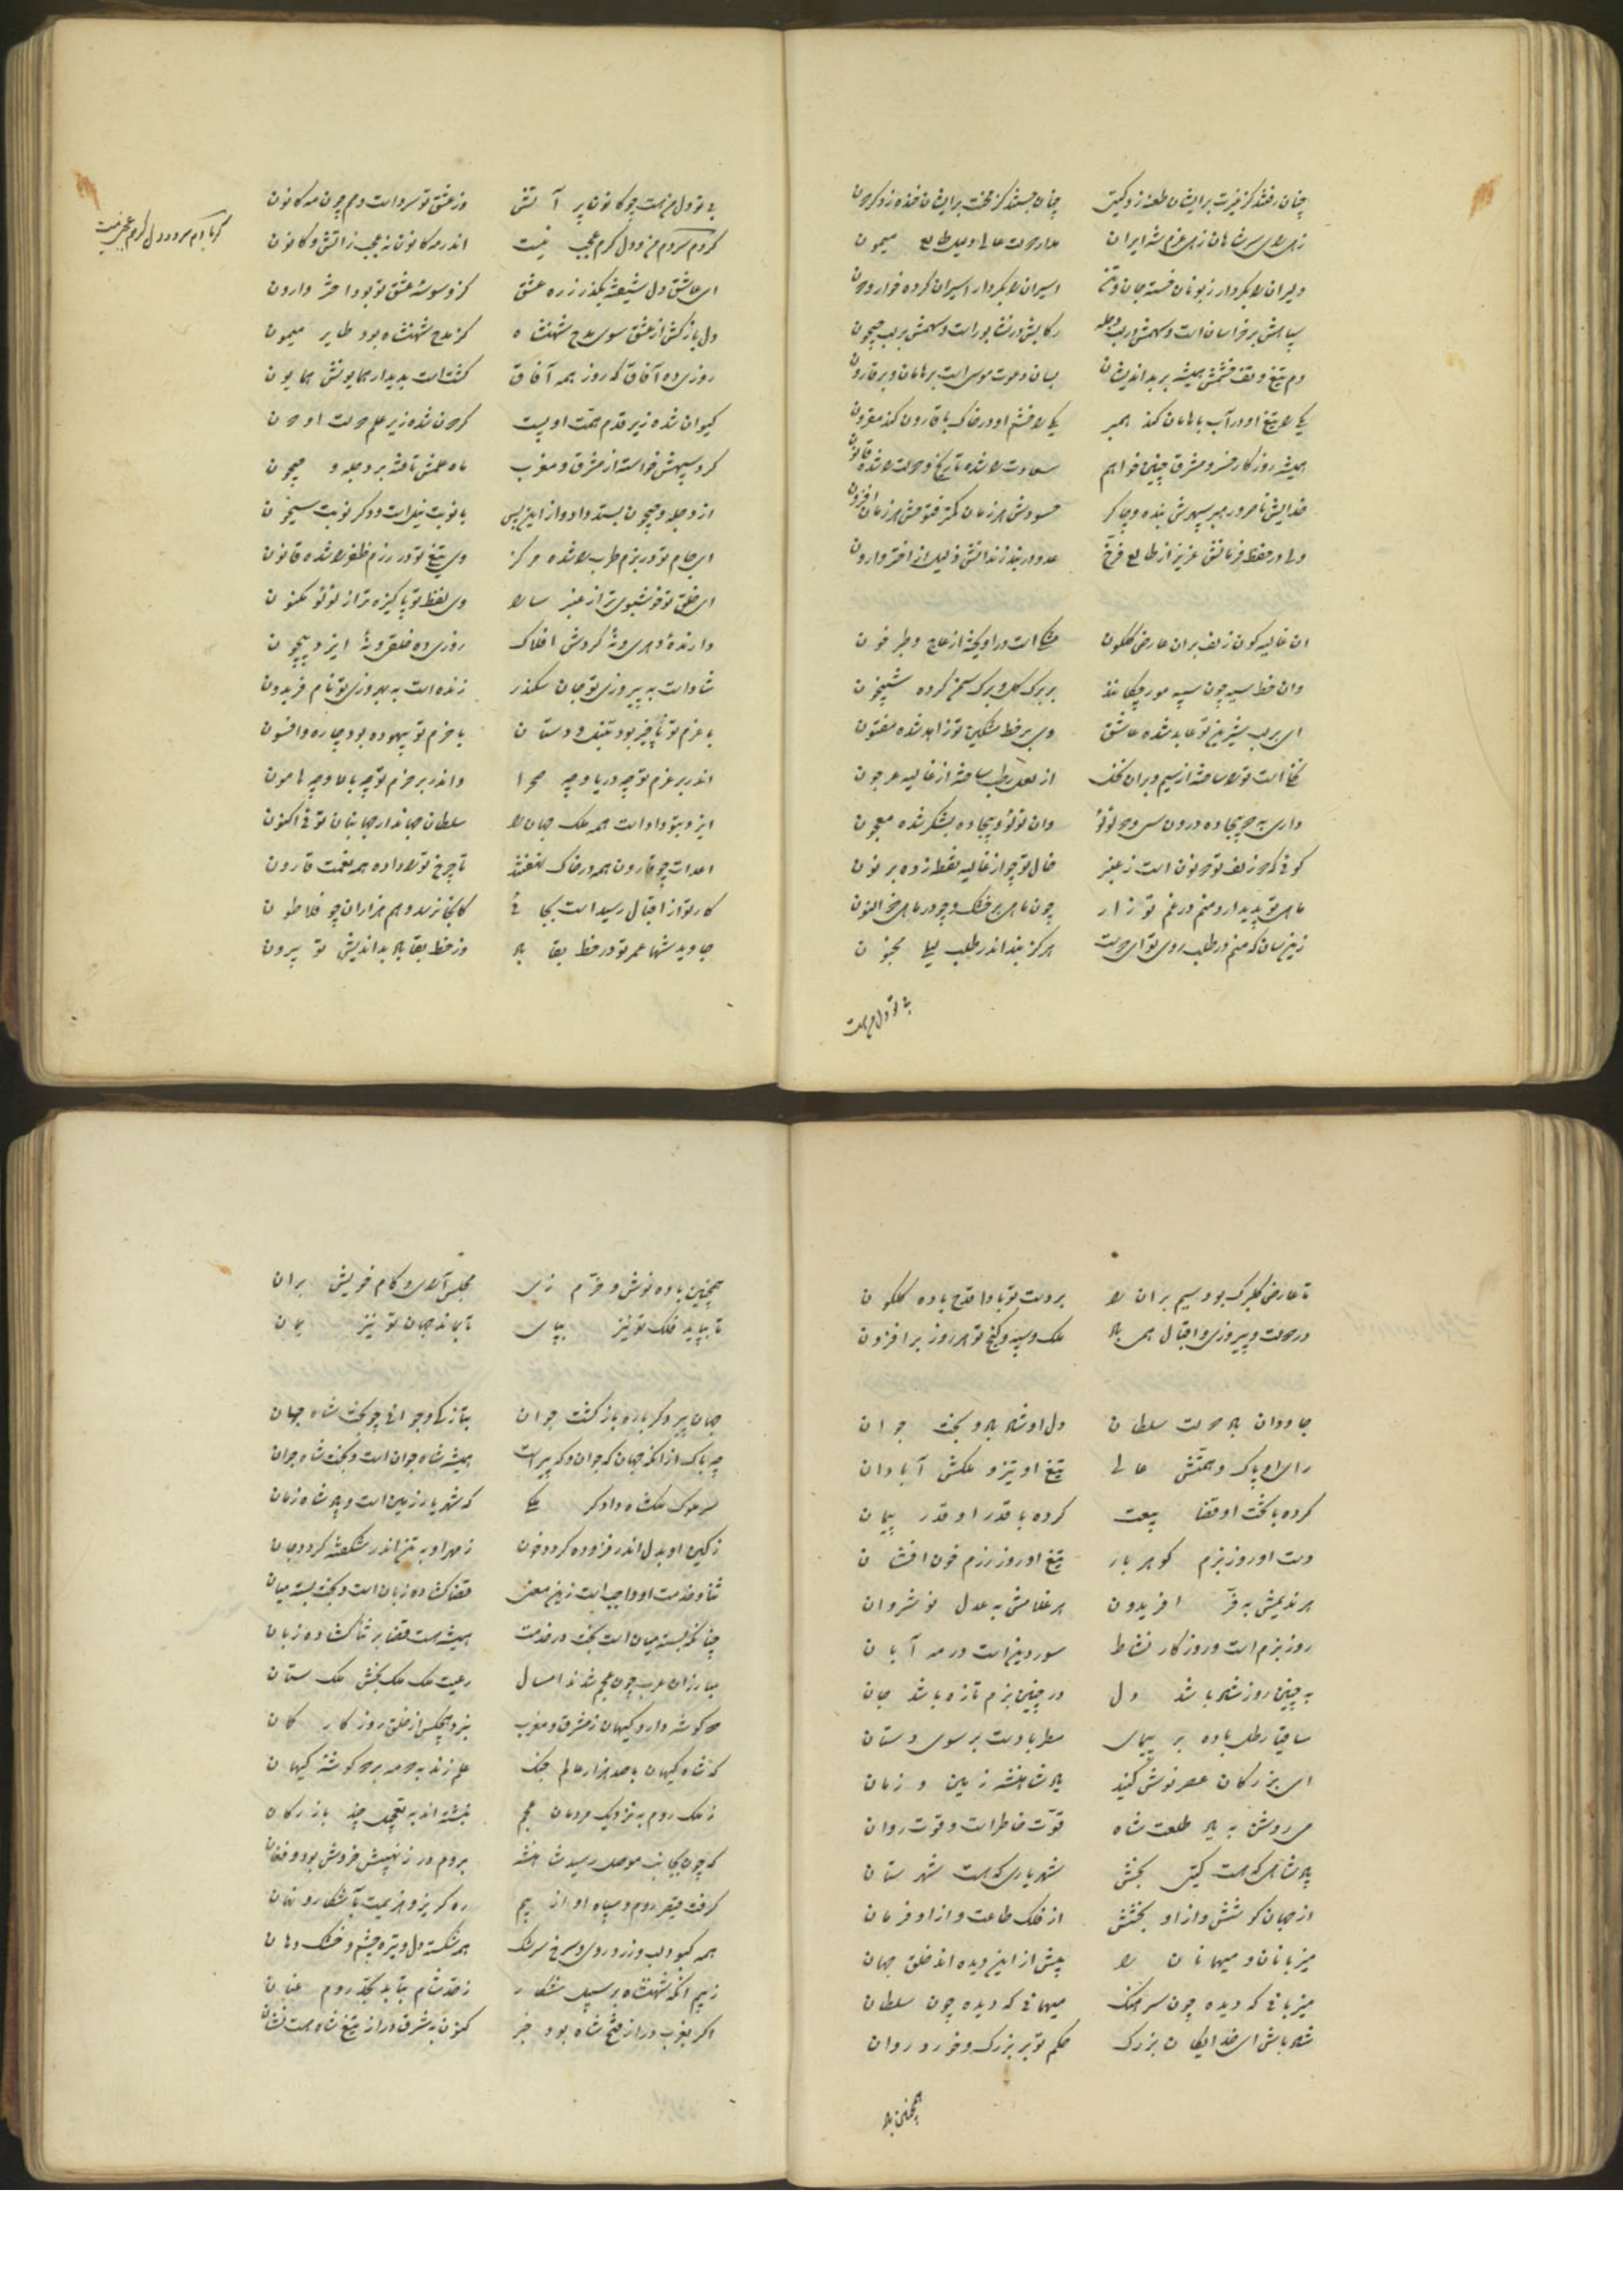 چنان رفتند کز غیرت بر ایشان طعنه زد گیتی چنان جستند کز محنت بر ایشان خنده زد گردون
زهی رای سر شاهان زهی عزم شه ایران مدار دولت عالی دلیل طالع میمون
دلیران را بکردار زبونان خسته جان و تن اسیران را بکردار اسیران کرده خوار و دون
سپاهش بر خراسان است و سهمش بر لب دجله رکابش در نشابور است و سهمش بر لب جیحون
دم تیغ و تف خشمش همیشه بر بداندیشان بسان دعوت موسی است بر هامان و بر قارون
یکی را تیغ او در آب با هامان کند همبر یکی را خشم او در خاک با قارون کند مقرون
همیشه روزگار خسرو مشرق چنین خواهم سعادت را شده تاریخ و دولت را شده قانون
خدایش ناصر و رهبر سپهرش بنده و چاکر حسودش هر زمان کمتر فتوحش هر زمان افزون
ولی در حفظ فرمانش عزیز از طالع فرخ عدو در بند زندانش ذلیل از اختر وارون
ان غالیه گون زلف بران عارض گلگون مشک است در اویخته از عاج و طبر خون
وان خط سیه چون سپه مورچگانند بر برگ گل و برگ سمن کرده شبیخون
ای بر لب شیرین تو عابد شده عاشق وی بر خط مشکین تو زاهد شده مفتون
نخل است تو را ساخته از سیم و بران نخل از لعل رطب ساخته از غالیه عرجون
داری به دو بیجاده درون سی و دو لولو وان لولو و بیجاده بشکر شده معجون
گوئی که دو زلف تو دو نون است ز عنبر خال تو چو از غالیه نقطه زده بر نون
ماهی تو پدیدار و منم در غم تو زار چون ماهی بر خشک و چو در ماهی ذوالنون
زین سان که منم در طلب روی تو ای دوست هرگز نبد اندر طلب لیلی مجنون
بی تو دل من هست
بی تو دل من هست چو کانون پر آتش وز عشق تو سرد است دمم چون مه کانون
گر دم سرد دم من و دل گرم عجب نیست اندر مه کانون نه عجب ز آتش و کانون
گر با دم سرد و دل گرم عجب نیست
ای عاشق دل شیفته بگذر ز ره عشق کز وسوسه عشق تو بود اختر وارون
دل باز کش از عشق سوی مدح شهنشاه کز مدح شهنشاه بود طایر میمون
روزی ده آفاق که روز همه آفاق گشت است بدیدار همایونش همایون
کیوان شده زیر قدم همت او پست گردون شده زیر علم دولت او دون
گرد سپهش خواسته از مشرق و مغرب ماه علمش تافته بر دجله و جیحون
از دجله و جیحون بستد داد و از این پس با نوبت نیل است و دگر نوبت سیحون
ای جام تو در بزم طرب را شده مرکز وی تیغ تو در رزم ظفر را شده قانون
ای خلق تو خوشبوی تر از عنبر سارا وی لفظ تو پاکیزه تر از لولو مکنون
دارنده دهری و نه گردش افلاک روزی ده خلقی و نه ایزد بیچون
شاد است به پیروزی تو جان سکندر زنده است به بهروزی تو نام فریدون
با عزم تو ناچیز بود تنبل و دستان با حزم تو بیهوده بود چاره و افسون
اندر بر عزم تو چه دریا و چه صحرا واندر بر حزم تو چه بالا و چه هامون
ایزد بتو داد است همه ملک جهان را سلطان جهاندار جهانبان توئی اکنون
اعدات چو قارون همه در خاک نهفتند تا چرخ تو را داده همه نعمت قارون
کار تو از اقبال رسید است بجائی کانجا نرسد وهم هزاران چو فلاطون
جاوید شها عمر تو در خط بقا باد وز خط بقا باد بداندیش تو بیرون
تا عارض گلبرگ بود سیم بران را بر دست تو بادا قدح باده گلگون
در دولت و پیروزی و اقبال همی باد ملک و سپه و گنج تو هر روز بر افزون
جاودان باد دولت سلطان دل او شاد باد و بخت جوان
رای او پاک و همتش عالی تیغ او تیز و ملکش آبادان
کرده با بخت او قضا بیعت کرده با قدر او قدر پیمان
دست او روز بزم گوهر بار تیغ او روز رزم خون افشان
هر ندیمش به فر افریدون هر غلامش به عدل نوشروان
روز بزم است و روزگار نشاط سور و دین است در مه آبان
به چنین روز شاد باشد دل در چنین بزم تازه باشد جان
ساقیا رطل باده بر پیمای مطربا دست بر سوی دستان
ای بزرگان عصر نوش کنید یاد شاهنشه زمین و زمان
می روشن به یاد طلعت شاه قوت خاطر است و قوت روان
پادشاهی که هست گیتی بخش شهریاری که هست شهرستان
از جهان کوشش و از او بخشش از فلک طاعت و از او فرمان
میزبانان و میهمانان را پیش از این دیده اند خلق جهان
میزبانی که دیده چون سرهنگ میهمانی که دیده چون سلطان
شاد باش ای خدایگان بزرگ حکم تو بر بزرگ و خرد روان
همچنین باد
همچنین باده نوش و خرم زی مجلس آرای و کام خویش بران
تا بپاید فلک تو نیز بپای تا بماند جهان تو نیز بمان
جهان پیر دگر باره باز گشت جوان بتازگی و جوانی چو بخت شاه جهان
چه باک از انکه جهان گه جوان و گه پیر است همیشه شاه جوان است و بخت شاه جوان
سر ملوک ملکشاه دادگر ملکی که شهریار زمین است و پادشاه زمان
ز کین او بدل اندر فزوده گردد خون ز مهر او به تن اندر شکفته گردد جان
ثنا و خدمت او واجب است زین معنی قضا گشاده زبان است و بخت بسته میان
چنانکه بسته میان است بخت در خدمت همیشه هست قضا بر ثنا گشاده زبان
مبارزان عرب چون عجم شدند امسال رعیت ملک ملک بخش ملک ستان
دو گوشه دارد گیهان ز مشرق و مغرب نبرد هیچکس از خلق روزگار گمان
که شاه گیهان با صد هزار عالم جنگ علم زند به دو مه بر دو گوشه گیهان
ز ملک روم به نزدیک مردمان عجم نبشته اند به تعجیل چند بازرگان
که چون بجانب موصل رسید شاهنشه بروم در ز نهیبش خروش بود و فغان
گرفت قیصر روم و سپاه او از بیم ره گریز و هزیمت بآشکار و نهان
همه کبود لب و زرد روی و سرخ سرشک همه شکسته دل و تیره چشم و خشک دهان
ز بیم انکه شهنشاه بر سبیل شکار ز حد شام بتابد بحد روم عنان
اگر بغرب در از فتح شاه بود خبر کنون بشرق در از تیغ شاه هست نشان